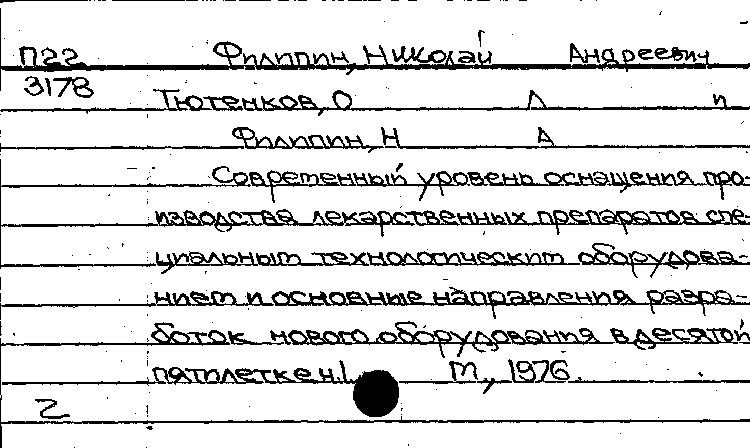 П22 Филиппин, Николай Андреевич
3178
Тютенков, О Л п
Филиппин, Н А
Современный уровень оснащения про-
изводства лекарственных препаратов спе-
циальным технологическим оборудова-
нием и основные направления разра-
боток нового оборудования в десятой
пятилетке ч.1 М., 1976.
2